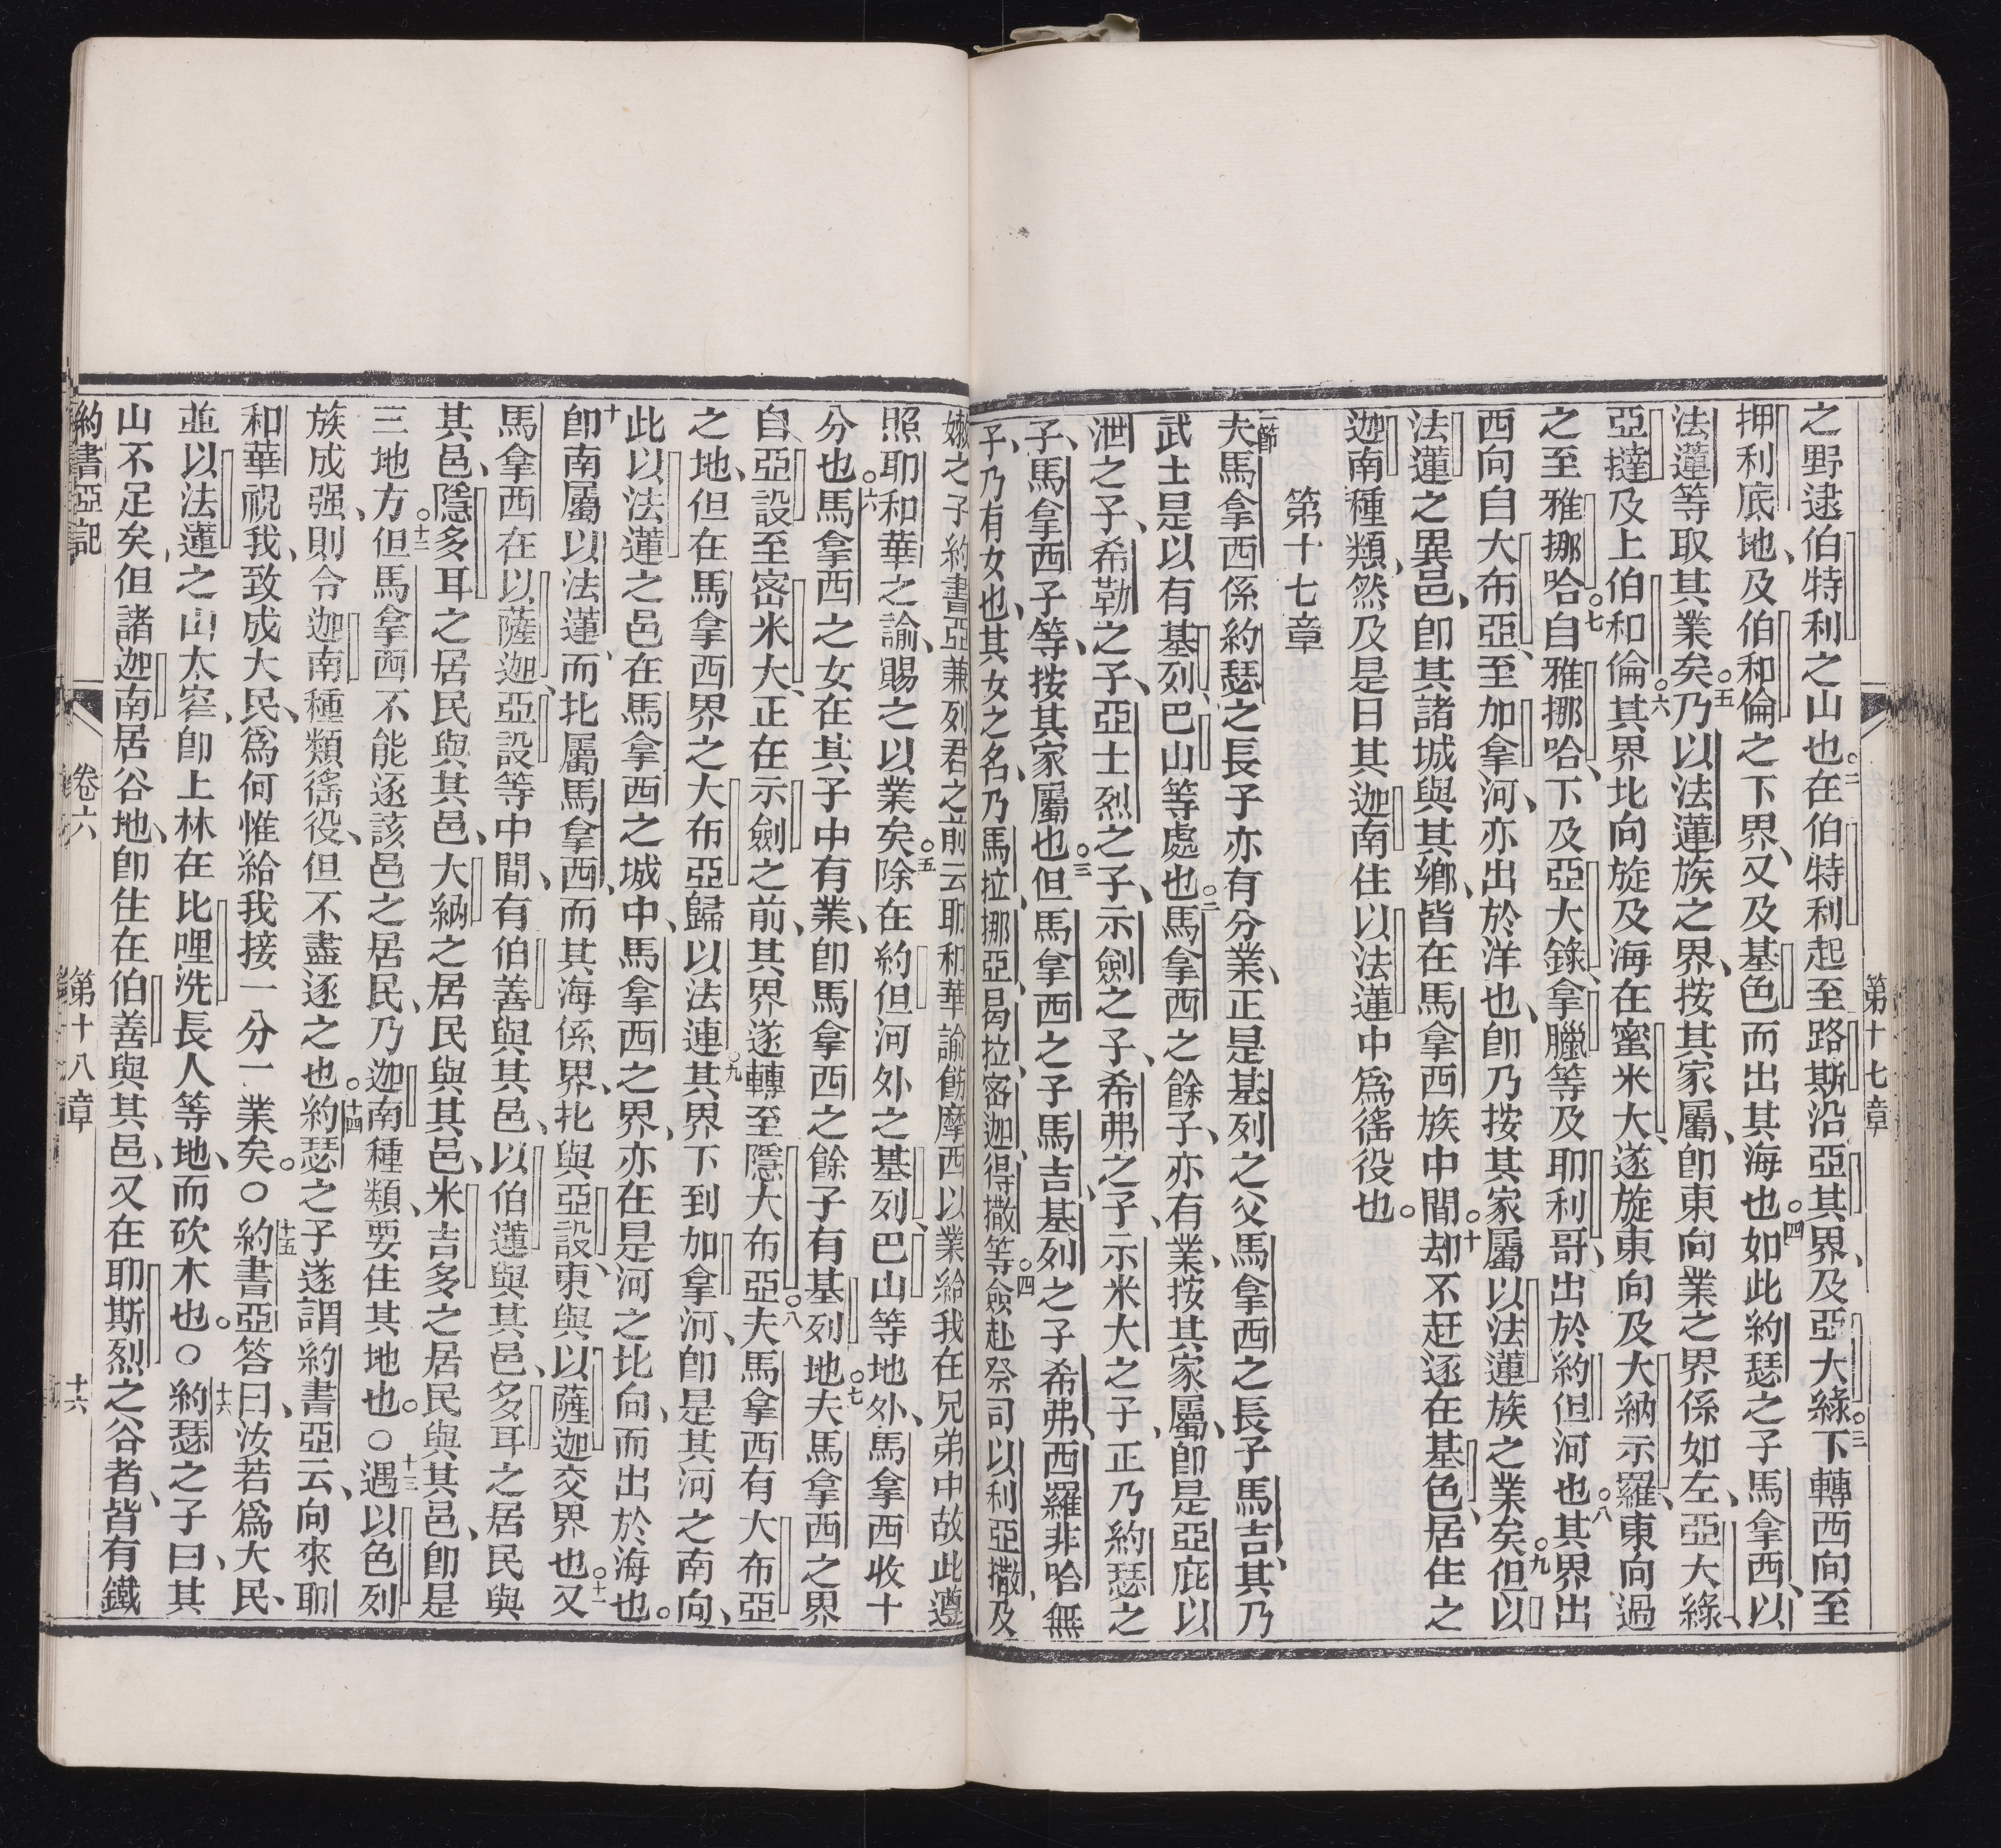 第十七章
之野逮伯特利之山也○二在伯特利起至路斯沿亞其界、及亞大綠○三下轉西向至
押利底地、及伯和倫之下界、又及基色而出其海也○四如此約瑟之子馬拿西、以
法蓮等取其業矣○五乃以法蓮族之界、按其家屬、卽東向業之界係如左、亞大綠
亞撻及上伯和倫○六其界北向旋及海在蜜米大、遂旋東向及大納示羅、東向過
之至雅挪哈○七自雅挪哈、下及亞大錄、拿臘等及耶利哥、出於約但河也○八其界出
西向自大布亞、至加拿河、亦出於洋也、卽乃按其家屬以法蓮族之業矣○九但以
法蓮之異邑、卽其諸城與其鄉、皆在馬拿西族中間○十却不赶逐在基色、居住之
迦南種類、然及是日其迦南住以法蓮中爲徭役也。
第十七章
一節夫馬拿西係約瑟之長子亦有分業、正是基列之父馬拿西之長子馬吉、其乃
武士是以有基列、巴山等處也○二馬拿西之餘子、亦有業、按其家屬、卽是亞庇以
泄之子、希勒之子、亞士烈之子、示劍之子、希弗之子、示米大之子、正乃約瑟之
子、馬拿西子等、按其家屬也○三但馬拿西之子馬吉、基列之子希弗、西羅非哈無
子、乃有女也、其女之名、乃馬拉、挪亞、曷拉、密迦、得撒等○四僉赴祭司以利亞撒、及
嫩之子約書亞兼列君之前云耶和華諭飭摩西以業給我在兄弟中故此遵
照耶和華之諭、賜之以業矣○五除在約但河外之基列、巴山等地外、馬拿西收十
分也○六馬拿西之女在其子中有業、卽馬拿西之餘子有基列地○七夫馬拿西之界
自亞設至宻米大、正在示劍之前、其界遂轉至隱大布亞○八夫馬拿西有大布亞
之地、但在馬拿西界之大布亞歸以法連○九其界下到加拿河、卽是其河之南向、
此以法蓮之邑在馬拿西之城中、馬拿西之界、亦在是河之北向、而出於海也。
十卽南屬以法蓮、而北屬馬拿西、而其海係界、北與亞設、東與以薩迦交界也○十一又
馬拿西在以薩迦、亞設等中間、有伯善與其邑、以伯蓮與其邑、多耳之居民與
其邑、隱多耳之居民與其邑、大納之居民與其邑、米吉多之居民與其邑、卽是
三地方○十二但馬拿西不能逐該邑之居民、乃迦南種類、要住其地也。○十三遇以色列
族成强、則令迦南種類徭役、但不盡逐之也○十四約瑟之子遂謂約書亞云、向來耶
和華祝我、致成大民、爲何惟給我接一分一業矣。○十五約書亞答曰、汝若爲大民、
並以法蓮之山太窄、卽上林在比哩洗長人等地、而砍木也。○十六約瑟之子曰、其
山不足矣、但諸迦南居谷地、卽住在伯善與其邑、又在耶斯烈之谷者、皆有鐵
約書亞記
卷六
第十八章
十六